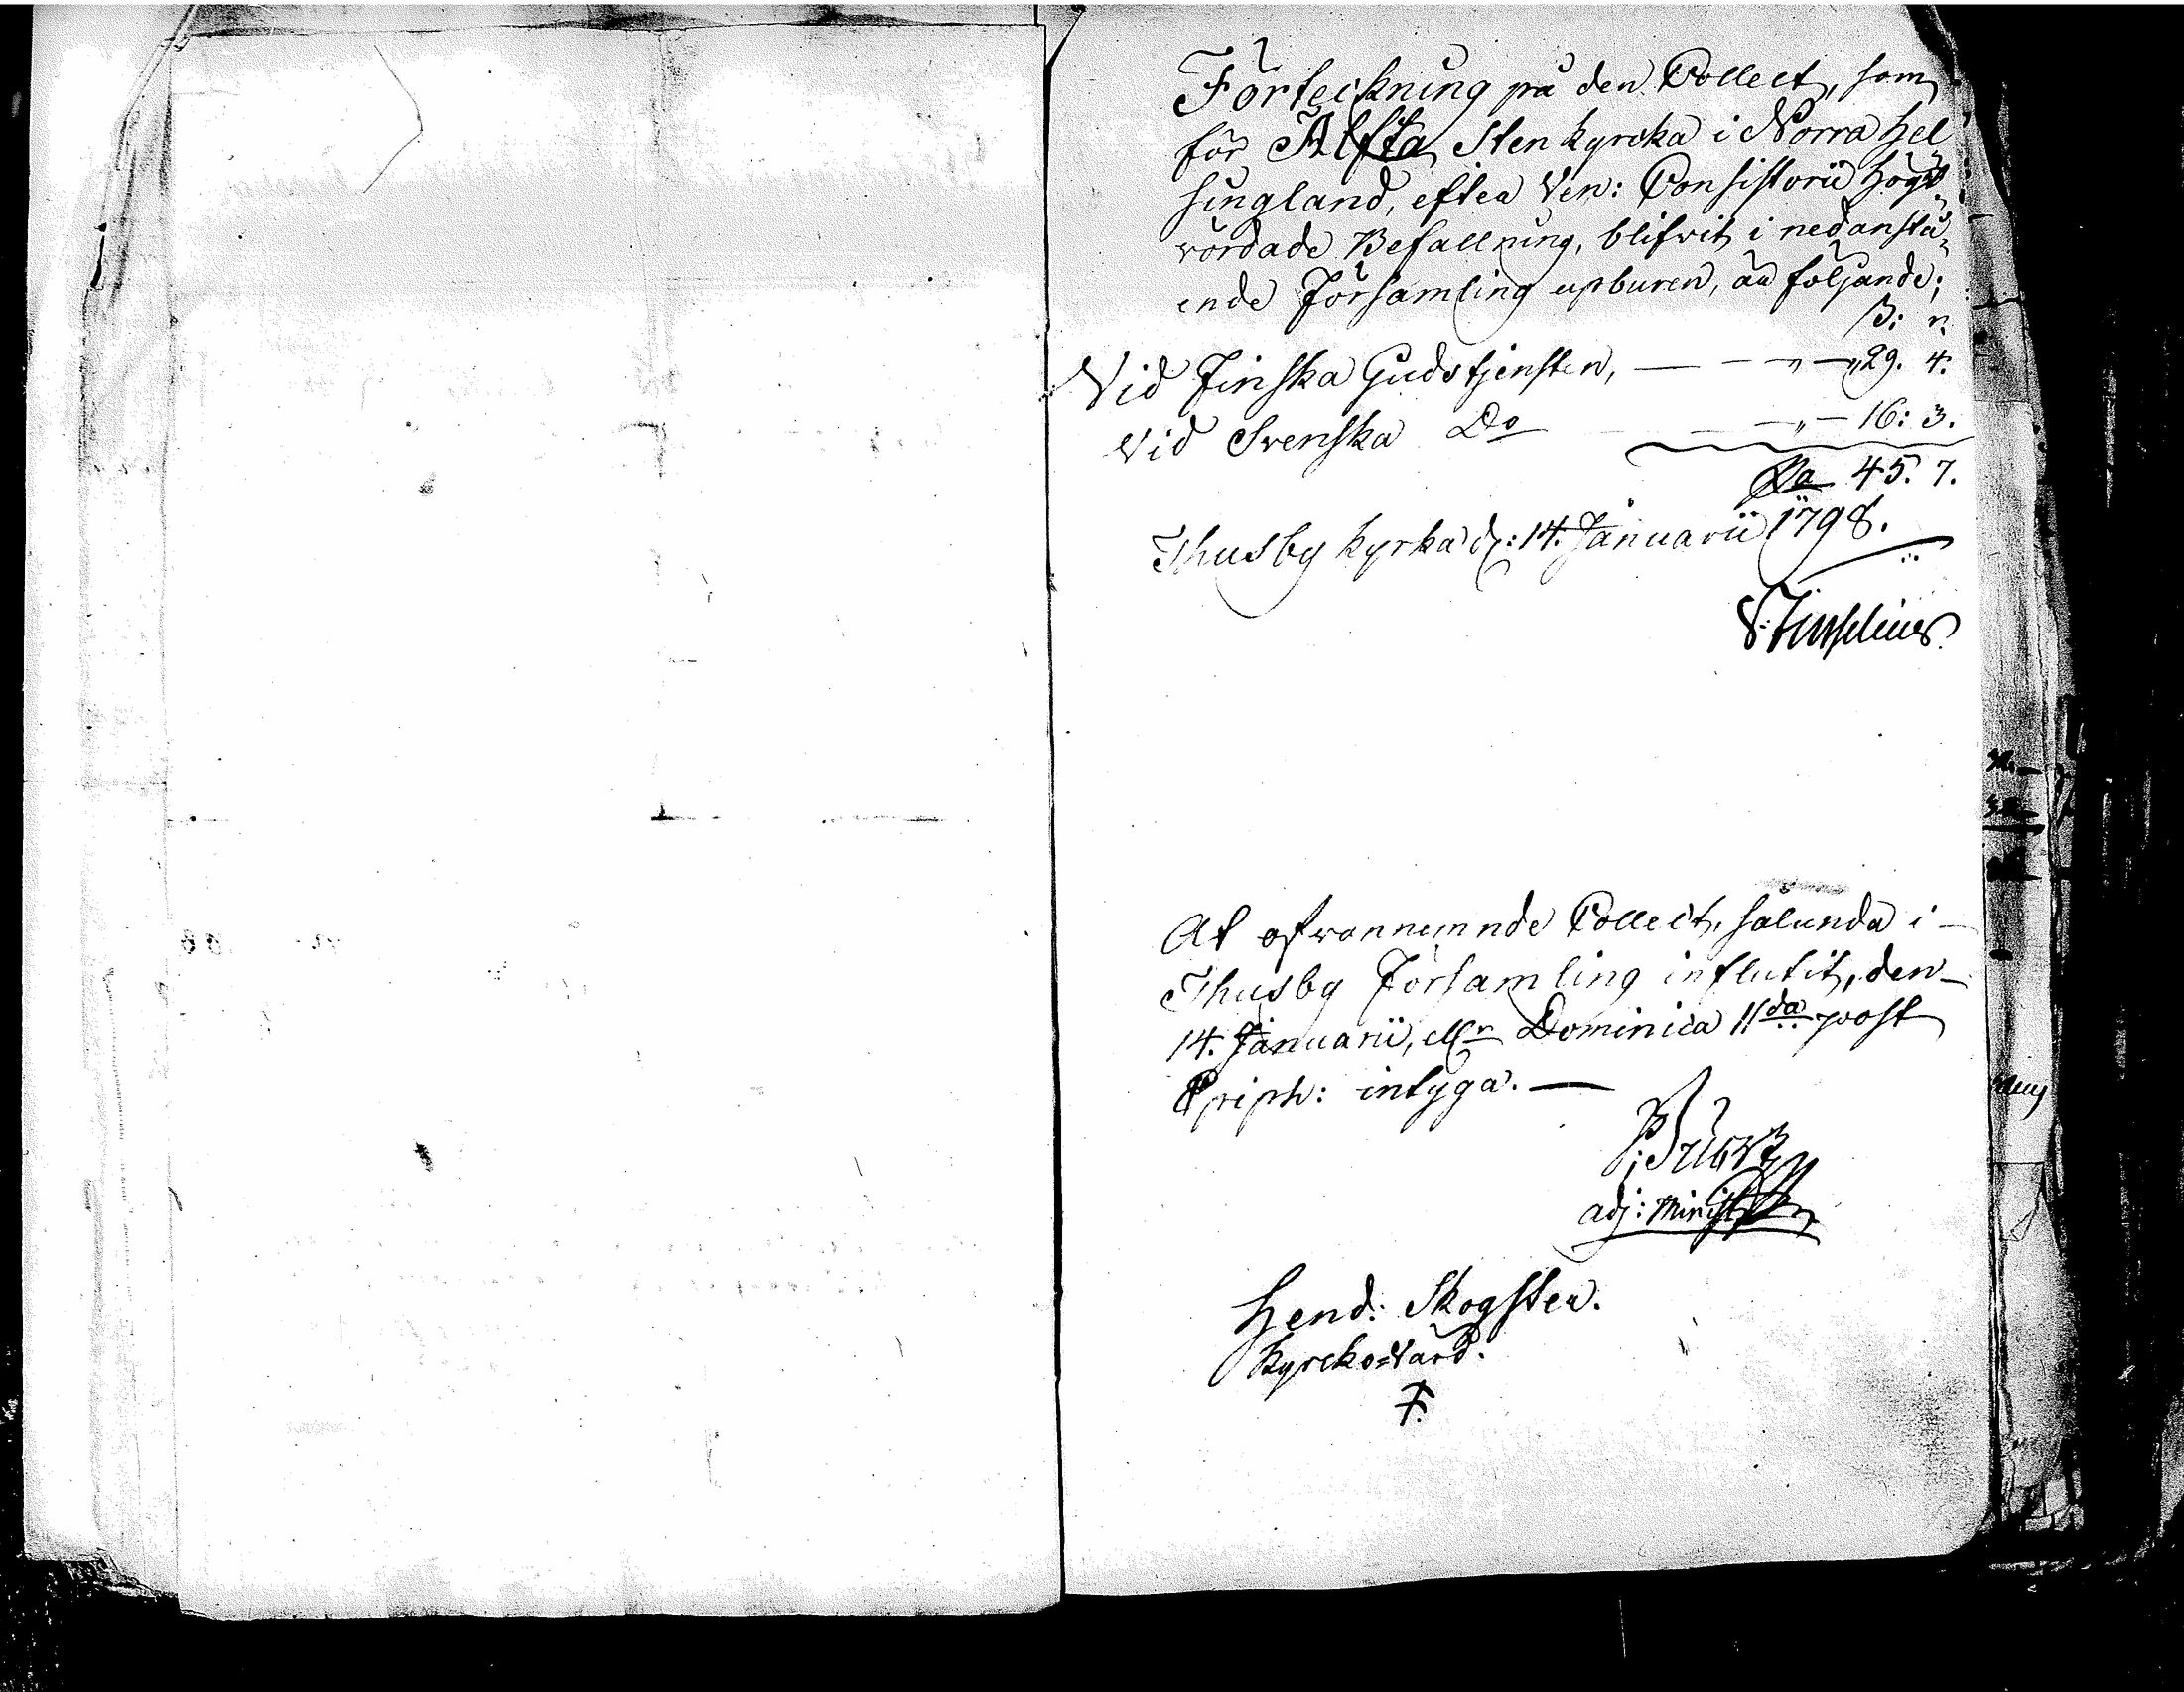 Förteckning på den Collect, som
för Alfta Sten kyrcka i Norra Hel
singland, efter Ven: Consistorii Hög-
vördade Befallning, blifvit i nedanstå-
ende Församling upburen, är följande;
ß: r.
Vid Finska Gudstjensten, — — „ — „ 29. 4.
Vid Svenska Do — — „ — 16: 3.
Sa 45. 7.
Thusby kyrka d: 14. Januarii 1798.
At ofvannemnde Collect, sålunda i
Thusby Församling influtit, den
14. Januarii, ellr Dominica IIda post
Epiph: intyga. —
adj: Minist
Hend: Skogster.
Kyrcko=Värd.